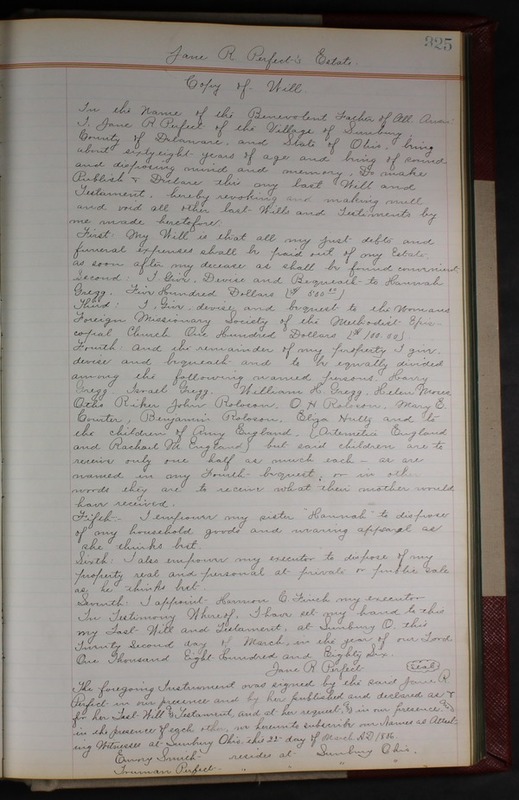 325
Jane R Perfect's Estate.
Copy of Will
In the Name of the Benevolent Father of All Amen.
I, Jane R Perfect of the Village of Sunbury,
County of Delaware, and State of Ohio, being
about sixtyeight years of age and being of sound
and disposing mind and memory, Do make
Publish & Declare this my last Will and
Testament, hereby revoking and making null
and void all other last Wills and Testaments by
me made heretofore.
First: My Will is that all my just debts and
funeral expenses shall be paid out of my Estate
as soon after my decease as shall be found convenient
Second: I Give, Devise and Bequeath to Hannah
Gregg, Five Hundred Dollars ($500.00)
Third: I Give, devise and bequest to the Womans
Foreign Missionary Society of the Methodist Epis-
copal Church One Hundred Dollars ($100.00)
Fourth- And the remainder of my property I give
devise and bequeath and to be equally divided
among the following named persons, Harry
Gregg Israel Gregg William H. Gregg, Helen Moore
Otho Riker John Roberson, O. H Roberson, Mary E.
Benjamin Roberson, Eliza Hults and to
the children of Amy England, (Artemetia England
and Rachail M England) but said children are to
receive only one half as much each- as are
named in my Fourth bequest, or in other
words they are to receive what their mother would
have received.
Fifth- I empower my sister "Hannah" to dispose
of my household goods and wearing apparal as
she thinks best.
Sixth: I also empower my executor to dispose of my
property real and personal at private or public sale
as he thinks best.
Seventh: I appoint Harmon C. Finch my executor
In Testimony Whereof, I have set my hand to this
my Last Will and Testament, at Sunbury O. this
Twenty Second day of March, in the year of our Lord
One Thousand Eight Hundred and Eighty Six.
Jane R Perfect (Seal)
The foregoing Instrument was signed by the said Jane R
Perfect in our presence and by her published and declared as &
for her Last Will & Testament, and at her request, & in our presence, and
in the presence of each other, we hereunto subscribe our Names as Attest-
ing Witnesses at Sunbury Ohio, the 22 day of March A.D 1886
Emory Smith resides at Sunbury Ohio.
Truman Perfect " " "